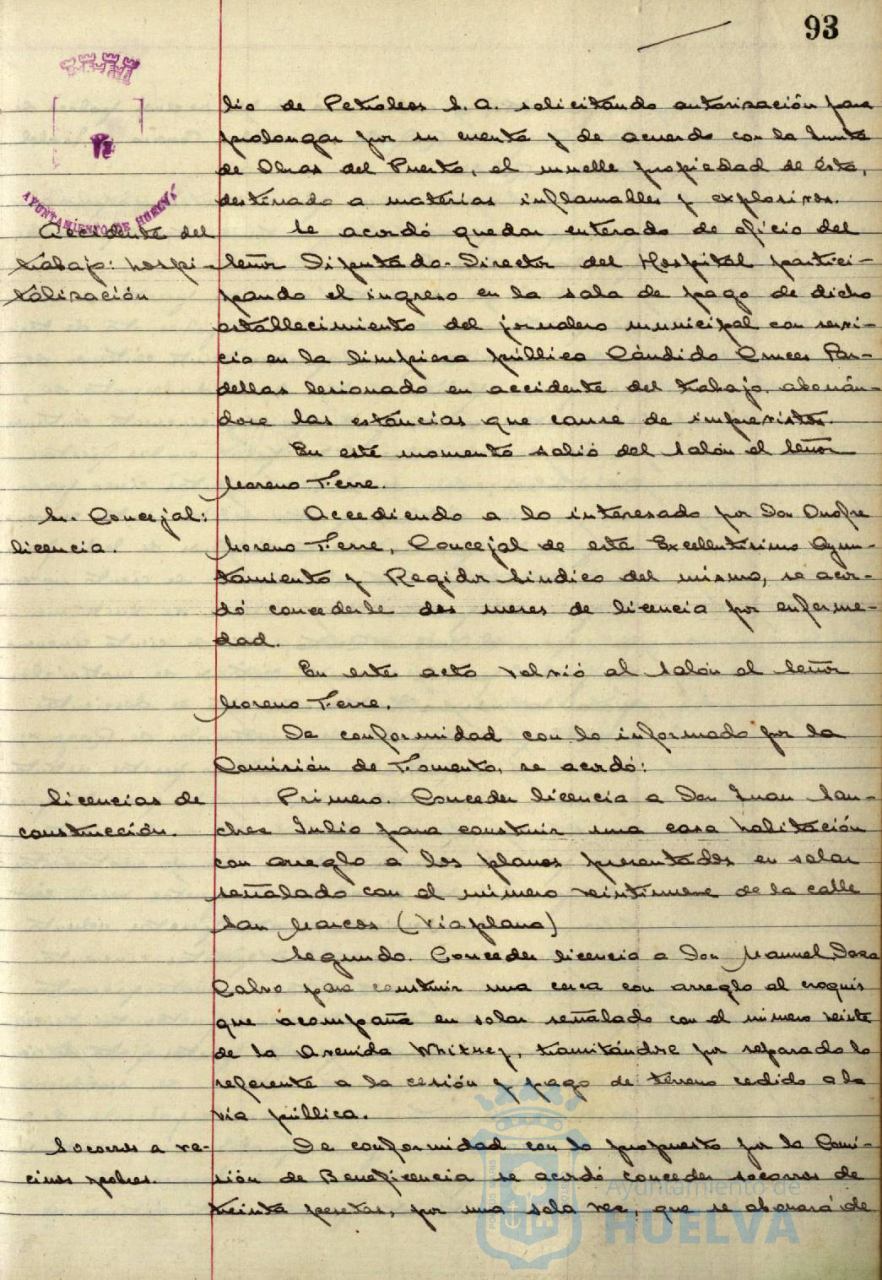 93
AYUNTAMIENTO DE HUELVA
lio de Petroleos S.A. solicitando autorización para
prolongar por su cuenta y de acuerdo con la Junta
de Obras del Puerto, el muelle propiedad de ésta,
destinado a materias inflamables y explosivos.
Accidente del
trabajo: hospi-
talización
Se acordó quedar enterado de oficio del
Señor Diputado-Director del Hospital partici-
pando el ingreso en la sala de pago de dicho
establecimiento del jornalero municipal con servi-
cio en la limpieza pública Cándido Cruces Bar-
dellas lesionado en accidente del trabajo, abonán-
dose las estancias que cause de imprevistos.
En este momento salió del Salón el Señor
Moreno Ferre.
Sr. Concejal:
licencia.
Accediendo a lo interesado por Don Onofre
Moreno Ferre, Concejal de este Excelentísimo Ayun-
tamiento y Regidor Síndico del mismo, se acor-
dó concederle dos meses de licencia por enferme-
dad.
En este acto volvió al Salón el Señor
Moreno Ferre.
De conformidad con lo informado por la
Comisión de Fomento, se acordó:
Licencias de
construcción.
Primero. Conceder licencia a Don Juan San-
chez Julio para construir una casa habitación
con arreglo a los planos presentados en solar
señalado con el número veintinueve de la calle
San Marcos (Viaplana)
Segundo. Conceder licencia a Don Manuel
Calvo para construir una cerca con arreglo al croquis
que acompaña en solar señalado con el número veinte
de la Avenida Whitney, tramitándose por separado lo
referente a la cesión y pago de terreno cedido a la
vía pública.
Socorros a ve-
cinos pobres.
De conformidad con lo propuesto por la Comi-
sión de Beneficencia se acordó conceder socorros de
treinta pesetas, por una sola vez, que se abonará de
Ayuntamiento de
HUELVA